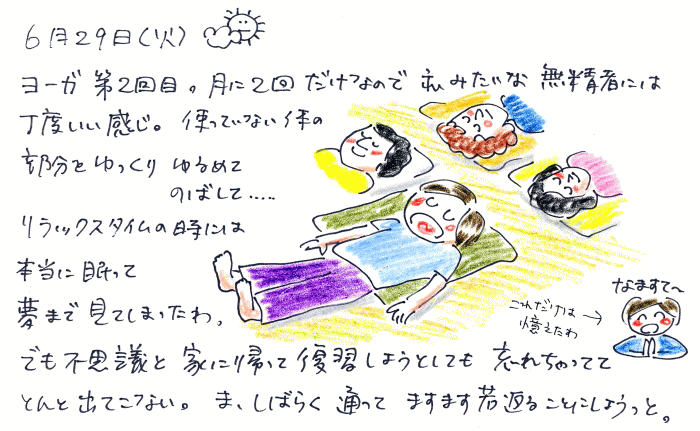 6月29日(火)
ヨーガ 第2回目。月に2回 だけなので 私みたいな 無精者には
丁度いい感じ。使っていない体の
部分をゆっくり ゆるめて
のばして.....
リラックスタイムの時には
本当に眠って
夢まで見てしまったわ。
なますて〜
これだけは→
憶えたわ
でも不思議と 家に帰って復習しようとしても 忘れちゃってて
とんと出てこない。ま、しばらく 通って ますます若返ることにしようっと。